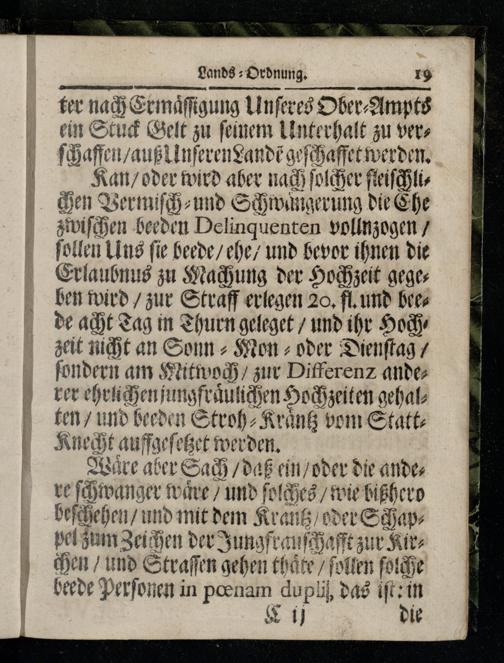 Lands-Ordnung. 19
ter nach Ermässigung Unseres Ober-Ampts
ein Stuck Gelt zu seinem Unterhalt zu ver-
schaffen/auß Unseren Landē geschaffet werden.
Kan/oder wird aber nach solcher fleischli-
chen Vermisch- und Schwängerung die Ehe
zwischen beeden Delinquenten vollnzogen/
sollen Uns sie beede/ehe/ und bevor ihnen die
Erlaubnus zu Machung der Hochzeit gege-
ben wird/zur Straff erlegen 20. fl. und bee-
de acht Tag in Thurn geleget/ und ihr Hoch-
zeit nicht an Sonn-Mon-oder Dienstag/
sondern am Mitwoch/zur Differenz ande-
rer ehrlichen jungfräulichen Hochzeiten gehal-
ten/und beeden Stroh-Kräntz vom Statt-
Knecht auffgesetzet werden.
Wäre aber Sach/daß ein/oder die ande-
re schwanger wäre/und solches/wie bißhero
beschehen/und mit dem Krantz/oder Schap-
pel zum Zeichen der Jungfrauschafft zur Kir-
chen/und Strassen gehen thäte/sollen solche
beede Personen in pœnam duplij, das ist: in
C ij die